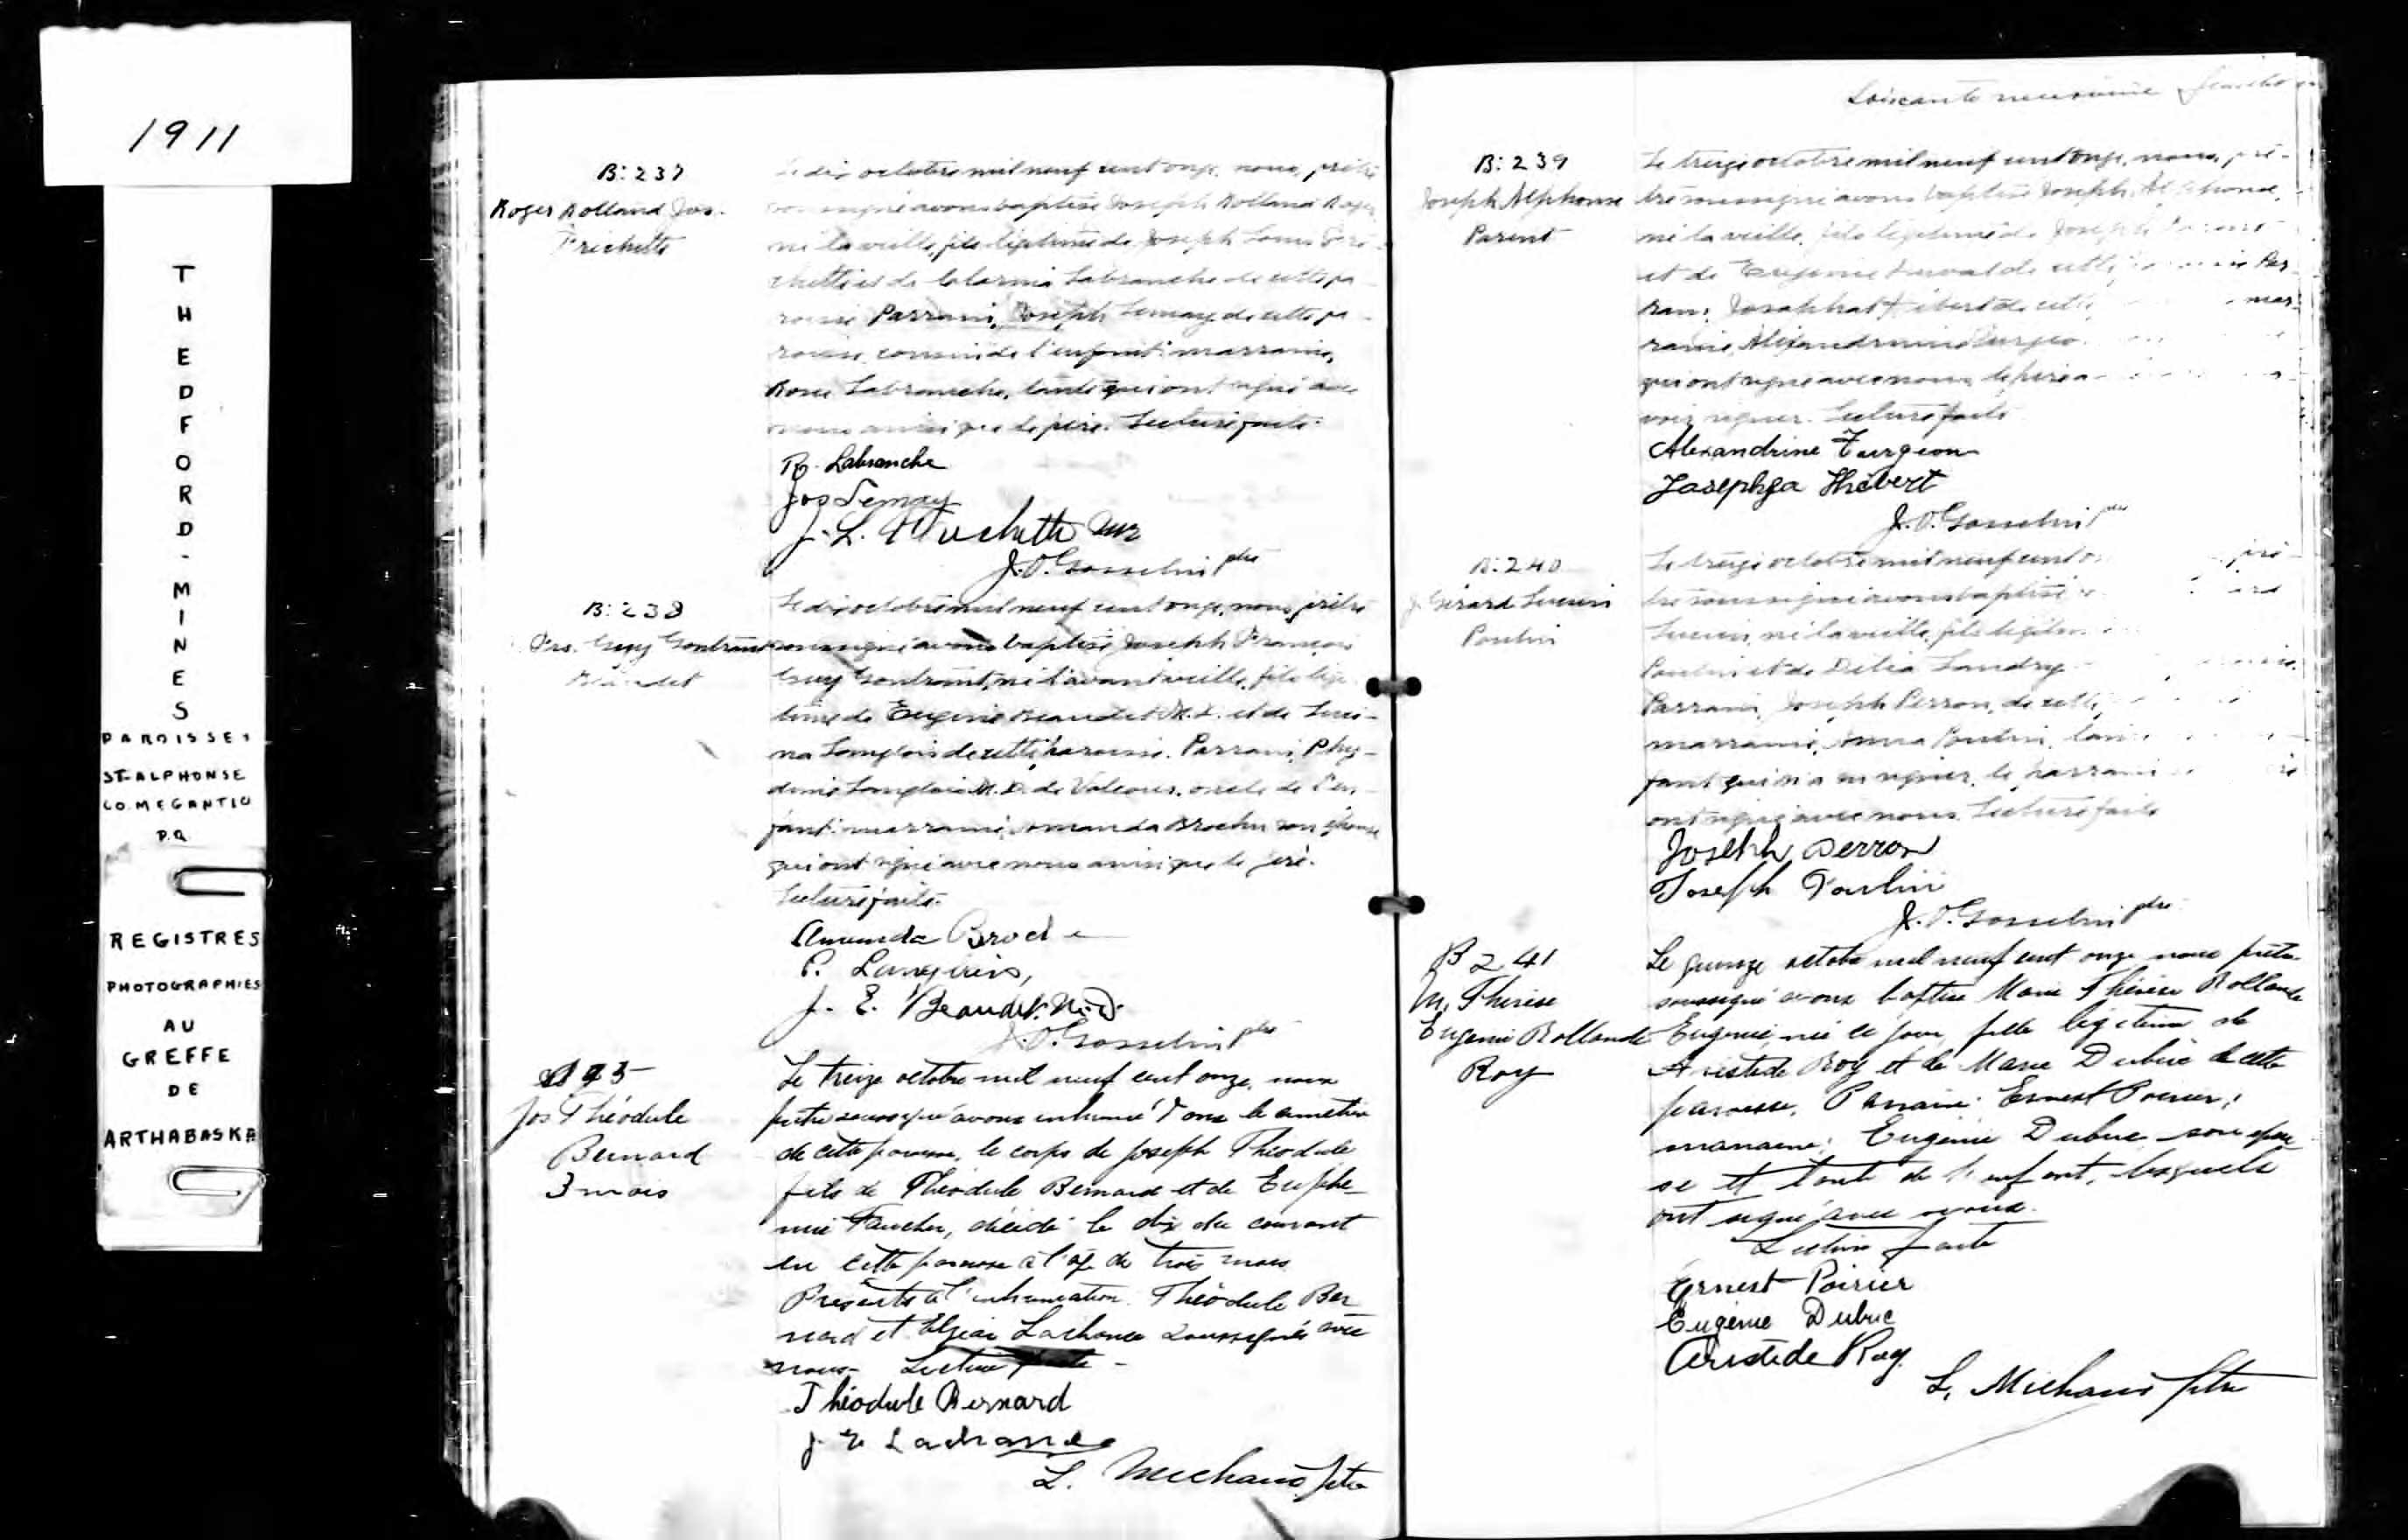 1911
THEDFORD-MINES
PAROISSE
ST-ALPHONSE
CO. MEGANTIC
P.Q.
REGISTRES
PHOTOGRAPHIES
AU
GREFFE
DE
ARTHABASKA
B: 237
Roger Rolland Jos.
Frechette
Le dix octobre mil neuf cent onze, nous, prêtre
soussigné avons baptisé Joseph Rolland Roger
né la veille, fils légitime de Joseph Louis Fré-
chette et de Labranche de cette pa-
roisse Parrain, Joseph Lemay de cette pa-
roisse, cousin de l'enfant: marraine,
Rose Labranche, tante qui ont signé avec
nous ainsi que le père. Lecture faite.
R. Labranche
Jos Lemay
J. L. Frechette
J. O. Gosselin ptre
B: 238
Frs. Guy Gontrant
Beaudet
Le dix octobre mil neuf cent onze, nous prêtre
soussigné avons baptisé Joseph François
Guy Gontrant, né l'avant veille, fils légi-
time de Eugène Beaudet M.D. et de Luci-
na Langlois de cette paroisse. Parrain, Phy-
dime Langlois M.D. de Valcour, oncle de l'en-
fant: marraine, Amanda Brochu son épouse
qui ont signé avec nous ainsi que le père.
Lecture faite.
Amanda Brochu
P. Langlois,
J. E. Beaudet M.D.
J. O. Gosselin ptre
Jos Théodule
Bernard
3 mois
Le treize octobre mil neuf cent onze, nous
prêtre soussigné avons inhumé dans le cimetière
de cette paroisse, le corps de Joseph Théodule
fils de Théodule Bernard et de Euphé-
mie Faucher, décédé le dix du courant
en cette paroisse à l'âge de trois mois
Présents à l'inhumation. Théodule Ber
nard et Elzéar Lachance soussignés avec
nous. Lecture faite -
Théodule Bernard
J E Lachance
L. Michaud ptre
Soixante neuvième feuillet
B: 239
Joseph Alphonse
Parent
Le treize octobre mil neuf cent onze, nous, prê-
tre soussigné avons baptisé Joseph Alphonse,
né la veille, fils légitime de Joseph Parent
et de Eugénie de cette Par-
rain: Josaphat de cette mar-
raine, Alexandrine Turgeon
qui ont signé avec nous, le père
voir signer. Lecture faite
Alexandrine Turgeon
J. O. Gosselin ptre
B: 240
J. Gérard Lucien
Poulin
Le treize octobre mil neuf cent prê-
tre soussigné avons baptisé
Lucien, né la veille, fils légitime
Poulin et de Délia Landry
Parrain, Joseph Perron, de cette
marraine, Anna Poulin,
fant qui n'a su signer, le parrain
ont signé avec nous. Lecture faite
Joseph Perron
Joseph Poulin
J. O. Gosselin ptre
B 241
M. Thérèse
Eugénie Rollande
Roy
Le quinze octobre mil neuf cent onze nous prêtre
soussigné avons baptisé Marie Thérèse Rollande
Eugénie, née ce jour, fille légitime de
Aristide Roy et de Marie Dubuc de cette
paroisse. Parrain: Ernest Poirier;
marraine: Eugénie Dubuc son épou
se et tante de l'enfant, lesquels
ont signé avec nous.
Lecture faite
Ernest Poirier
Eugénie Dubuc
Aristide Roy
L. Michaud ptre